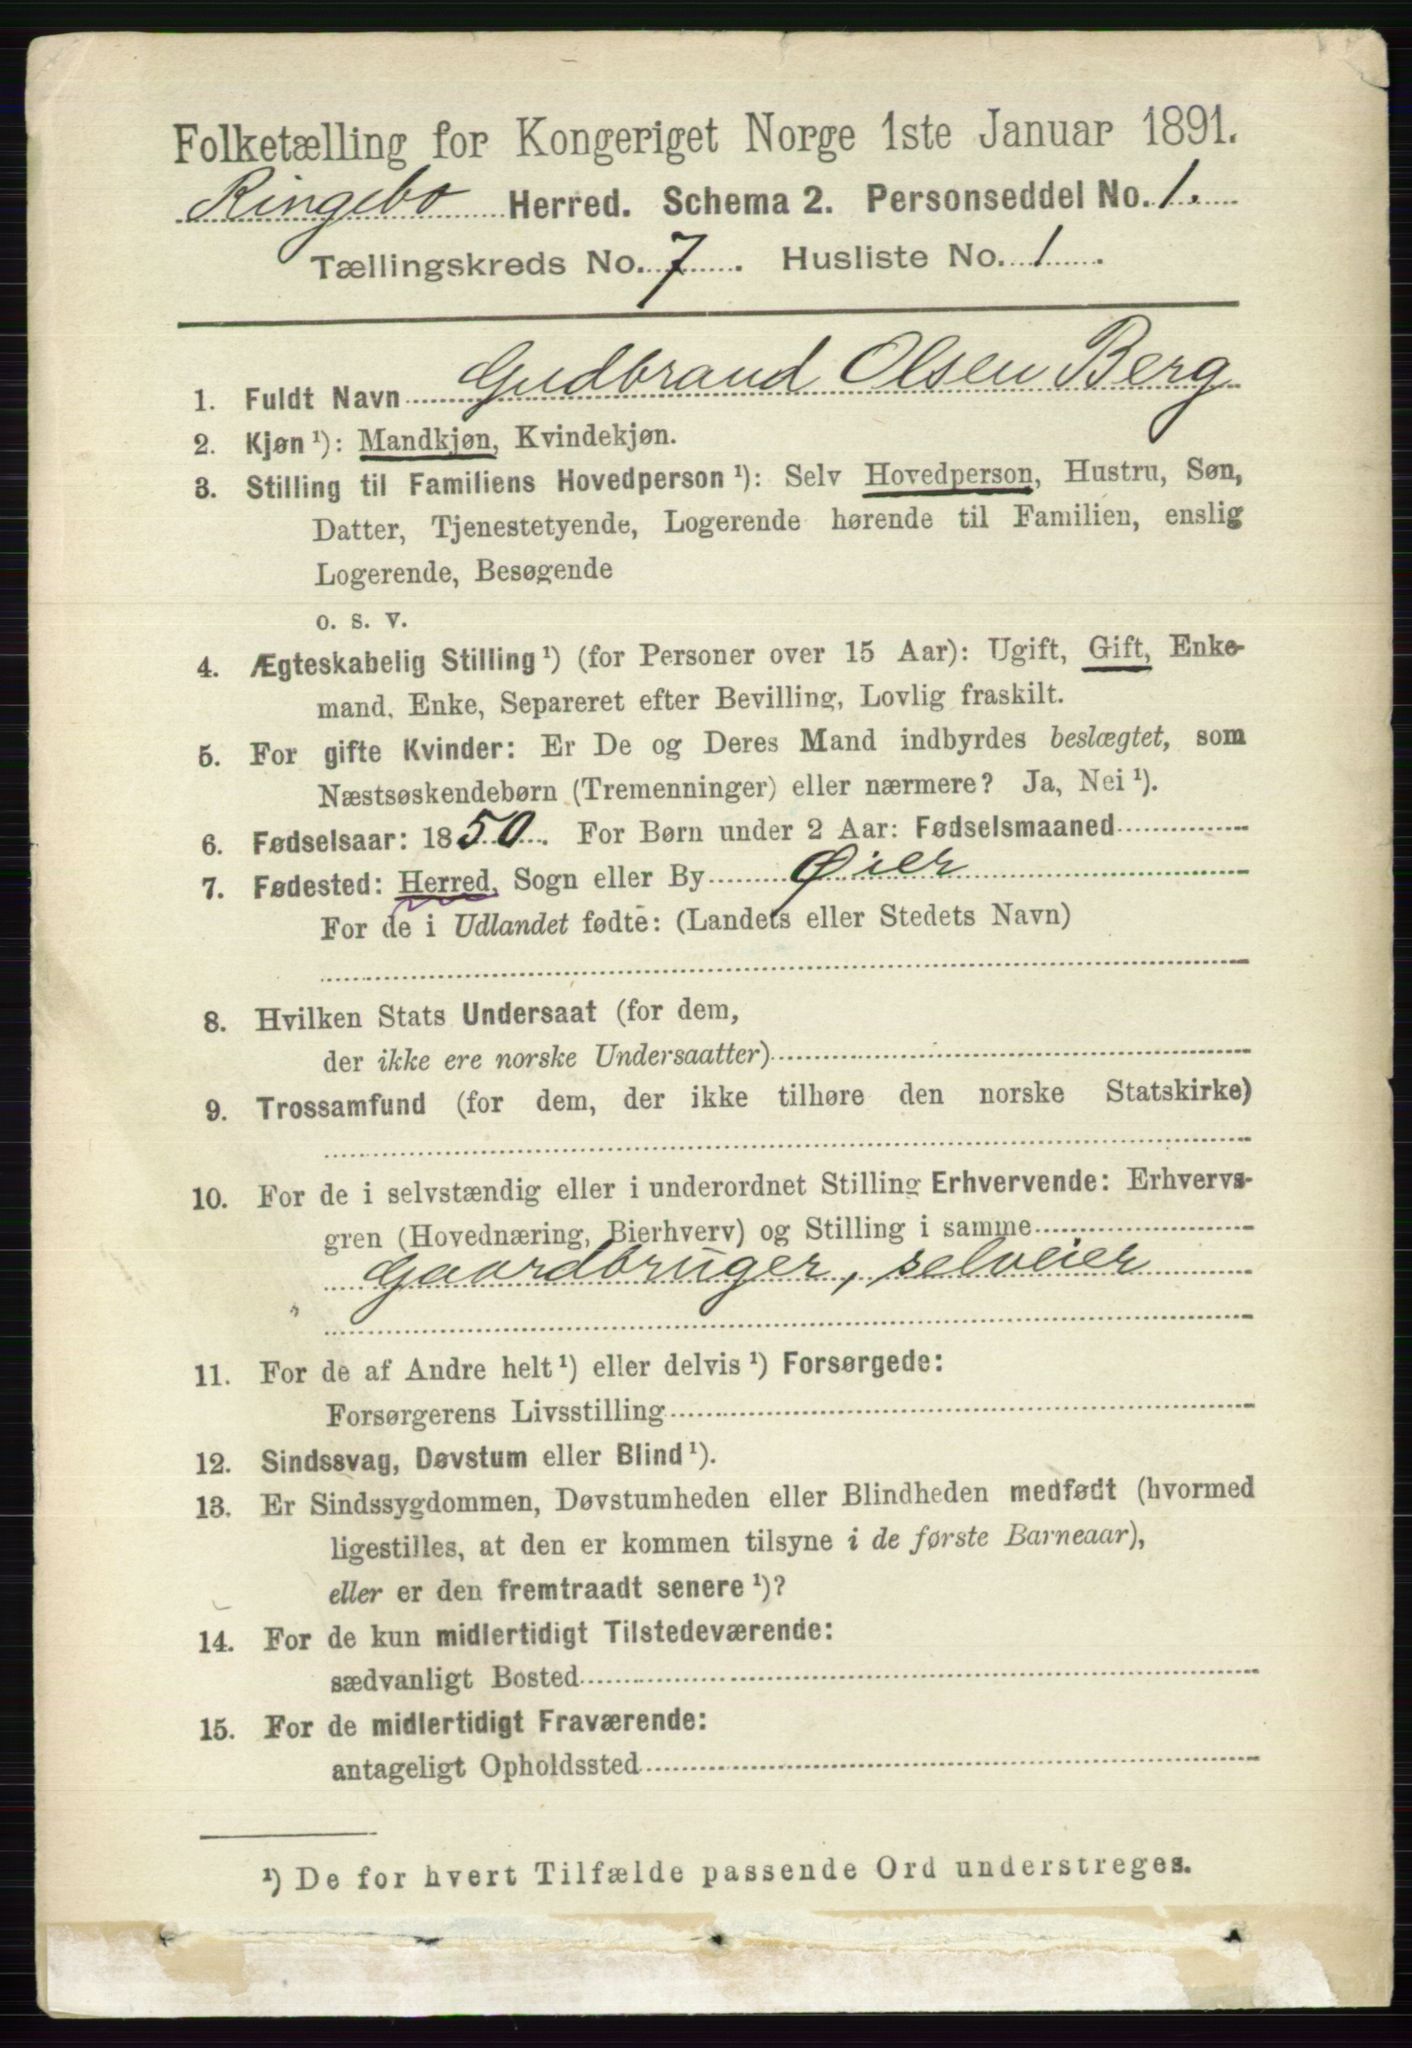 Folketælling for Kongeriget Norge 1ste Januar 1891.
Ringebo Herred. Schema 2. Personseddel No. 1.
Tællingskreds No. 7. Husliste No. 1.
1. Fuldt Navn Gudbrand Olsen Berg
2. Kjøn ¹): Mandkjøn, Kvindekjøn.
3. Stilling til Familiens Hovedperson ¹): Selv Hovedperson, Hustru, Søn,
Datter, Tjenestetyende, Logerende hørende til Familien, enslig
Logerende, Besøgende
o. s. v.
4. Ægteskabelig Stilling ¹) (for Personer over 15 Aar): Ugift, Gift, Enke-
mand, Enke, Separeret efter Bevilling, Lovlig fraskilt.
5. For gifte Kvinder: Er De og Deres Mand indbyrdes beslægtet, som
Næstsøskendebørn (Tremenninger) eller nærmere? Ja, Nei ¹).
6. Fødselsaar: 1850. For Børn under 2 Aar: Fødselsmaaned
7. Fødested: Herred, Sogn eller By Øier
For de i Udlandet fødte: (Landets eller Stedets Navn)
8. Hvilken Stats Undersaat (for dem,
der ikke ere norske Undersaatter)
9. Trossamfund (for dem, der ikke tilhøre den norske Statskirke)
10. For de i selvstændig eller i underordnet Stilling Erhvervende: Erhvervs-
gren (Hovednæring, Bierhverv) og Stilling i samme
Gaardbruger, selveier
11. For de af Andre helt ¹) eller delvis ¹) Forsørgede:
Forsørgerens Livsstilling
12. Sindssvag, Døvstum eller Blind ¹).
13. Er Sindssygdommen, Døvstumheden eller Blindheden medfødt (hvormed
ligestilles, at den er kommen tilsyne i de første Barneaar),
eller er den fremtraadt senere ¹)?
14. For de kun midlertidigt Tilstedeværende:
sædvanligt Bosted
15. For de midlertidigt Fraværende:
antageligt Opholdssted
¹) De for hvert Tilfælde passende Ord understreges.